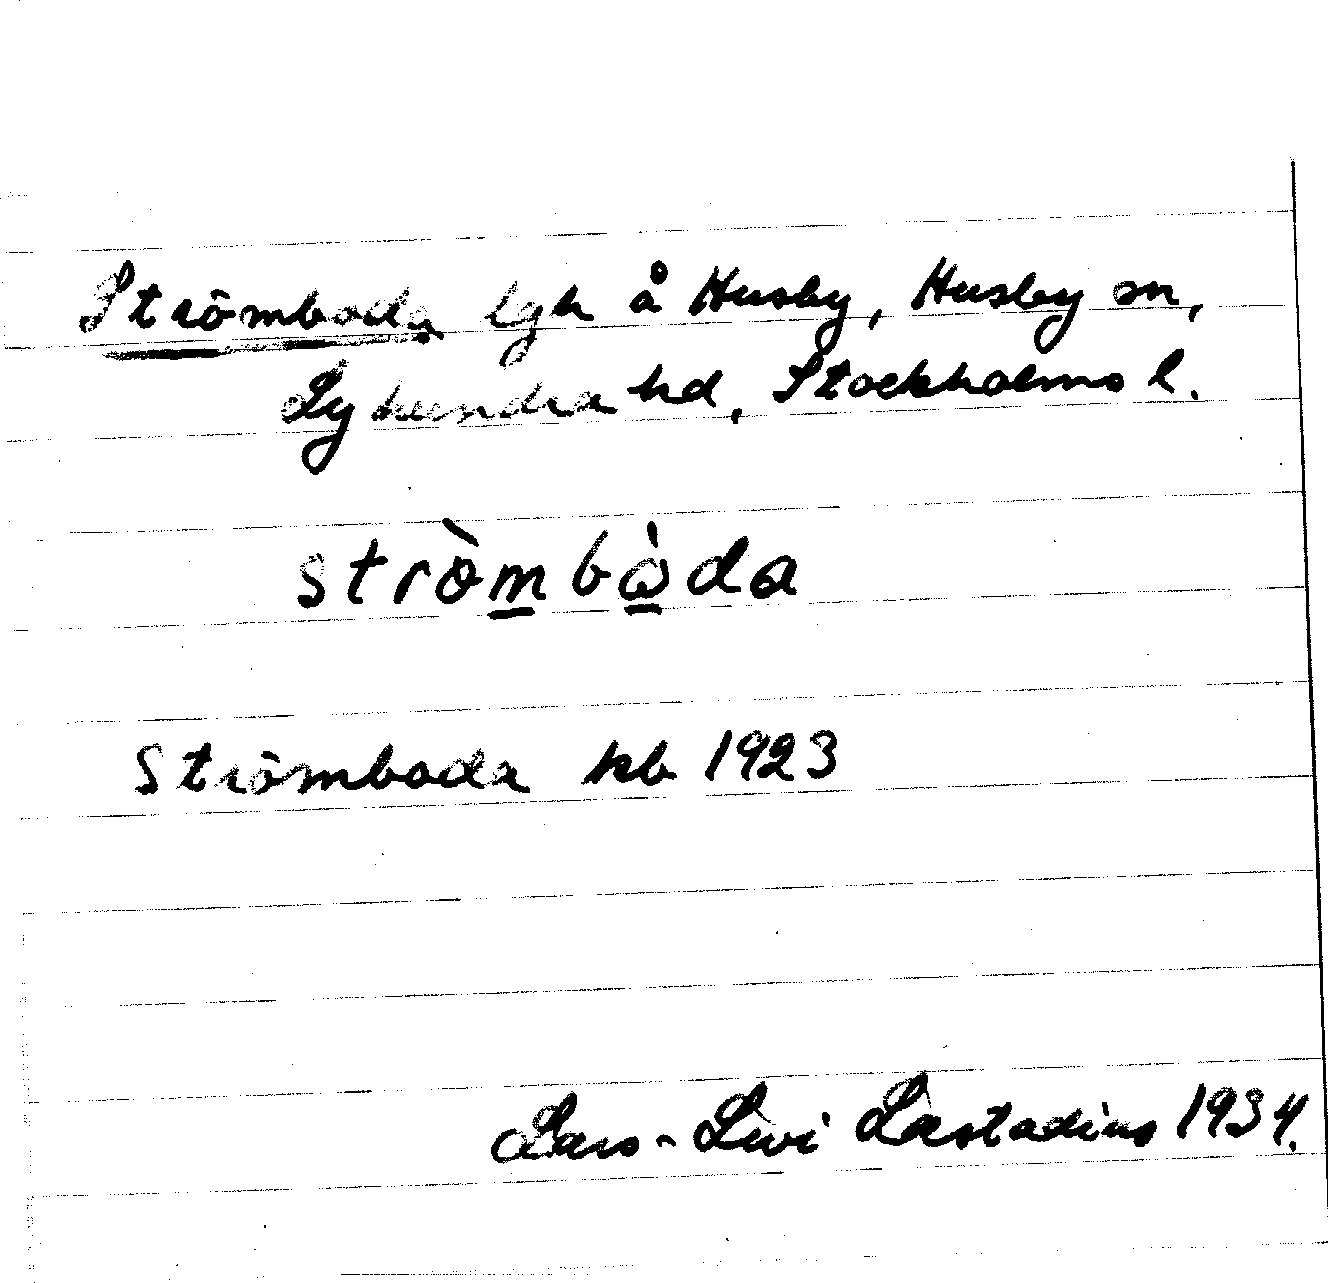 Strömboda lgh å Husby, Husby sn,
Lyhundra hd, Stockholms l.
strò̀m̲bὼ̲da
Strömboda kb 1923
Lars-Levi Læstadius 1934.